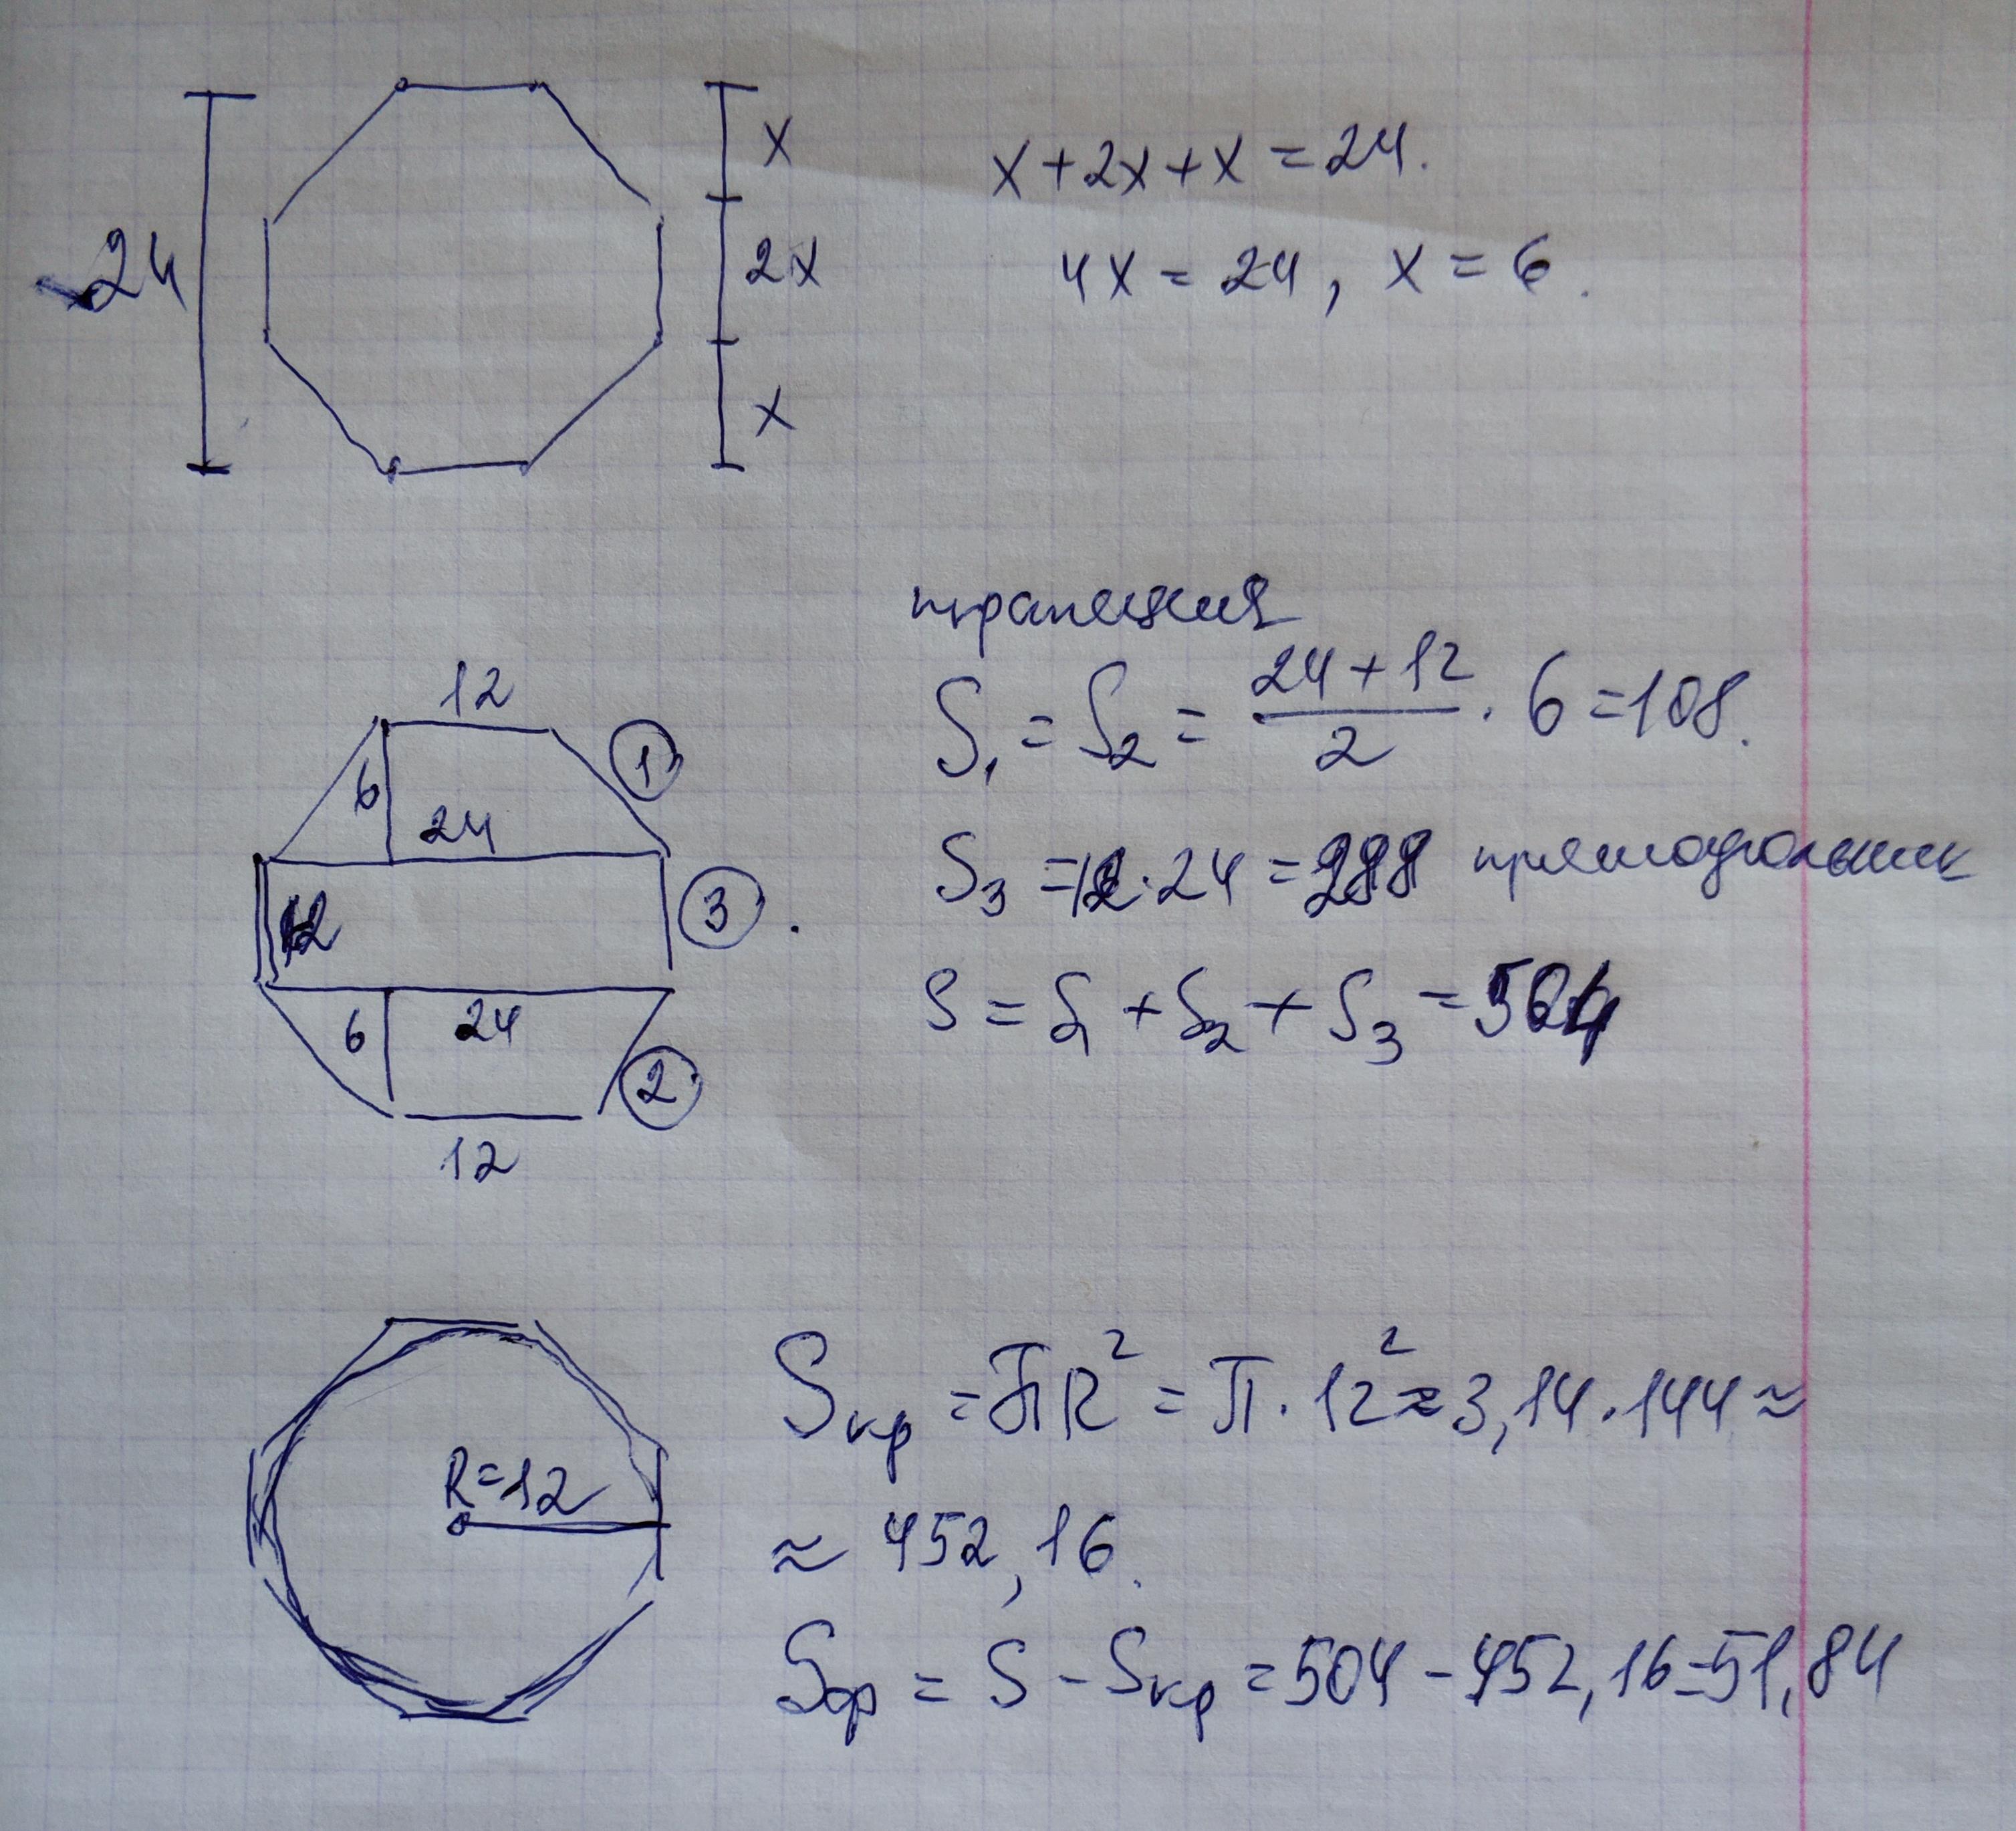 24
x
2x
x
x + 2x + x = 24.
4x = 24, x = 6.
трапеция
12
6
24
1
12
3
6
24
2
12
S₁ = S₂ = (24 + 12)/2 · 6 = 108.
S₃ = 12 · 24 = 288 прямоугольник
S = S₁ + S₂ + S₃ = 504
R = 12
Sкр = πR² = π · 12² ≈ 3,14 · 144 ≈
≈ 452,16.
Sфр = S - Sкр = 504 - 452,16 = 51,84